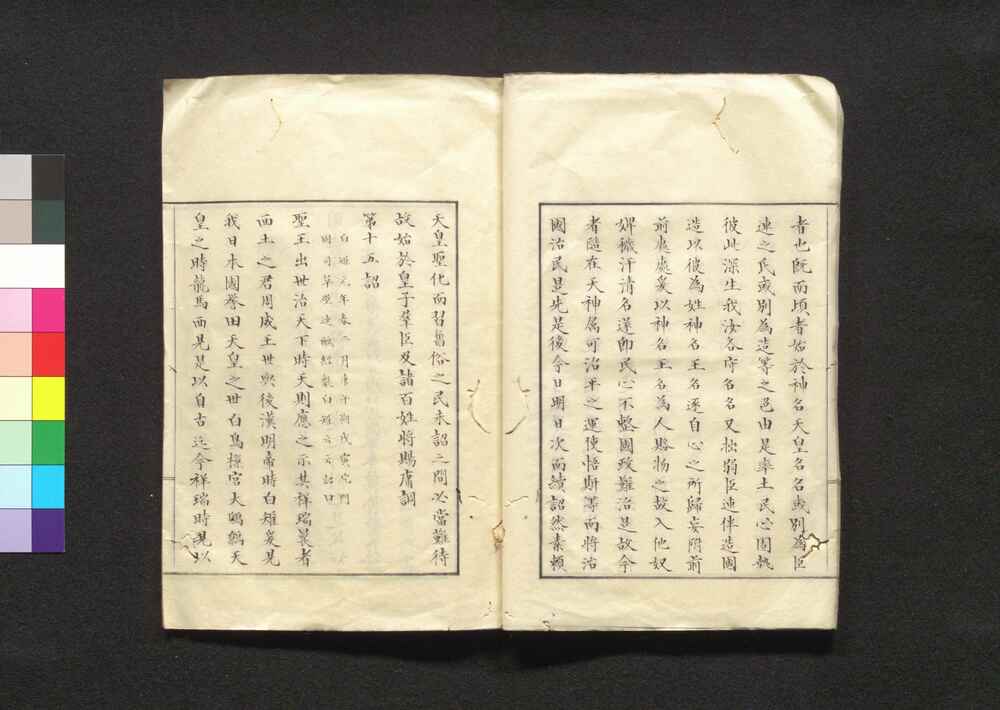 者也既而頃者始於神名天皇名名或別為臣
連之氏或別為造等之色由是率土民心固執
彼此深生我汝各守名名又拙弱臣連伴造國
造以彼為姓神名王名逐自心之所歸妄附前
前處處爰以神名王名為人賂物之故入他奴
婢穢汙清名遂即民心不整國政難治是故今
者隨在天神属可治平之運使悟斯等而將治
國治民是先是後今日明日次而續詔然素頼
天皇聖化而習舊俗之民未詔之間必當難待
故始於皇子羣臣及諸百姓將賜庸調
第十五詔
白雉元年春二月庚午朔戊寅穴門
國司草壁連醜經獻白雉云云詔曰
聖王出世治天下時天則應之示其祥瑞曩者
西土之君周成王世與後漢明帝時白雉爰見
我日本國譽田天皇之世白烏樔宮大鷦鷯天
皇之時龍馬西見是以自古迄今祥瑞時見以